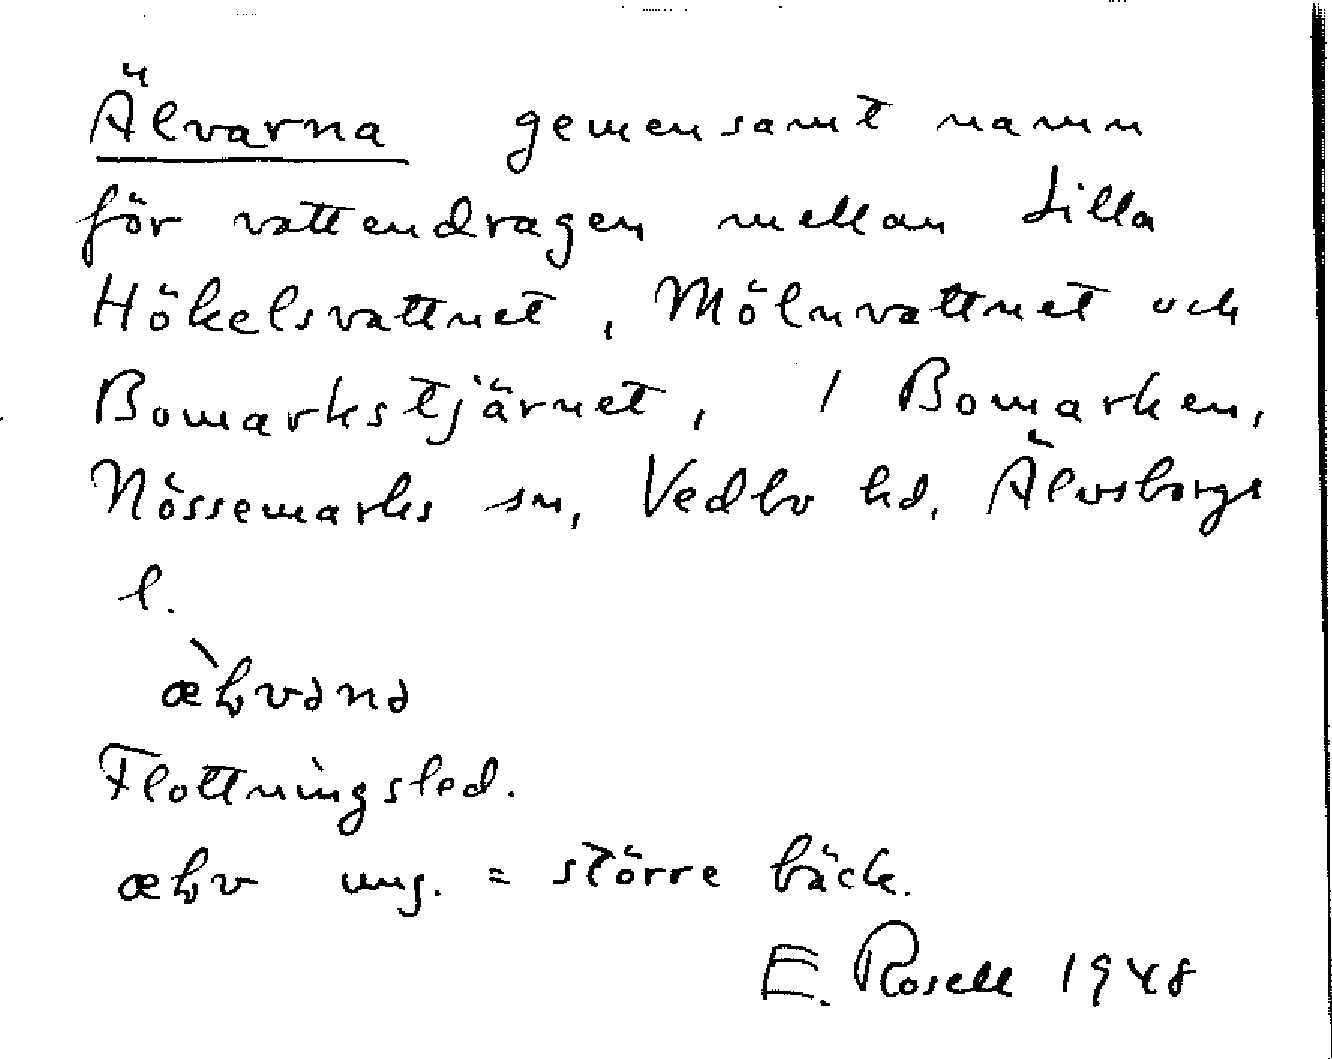 Älvarna gemensamt namn
för vattendragen mellan Lilla
Hökelsvattnet, Mölnvattnet och
Bomarkstjärnet, / Bomarken,
Nössemarks sn, Vedbo hd, Älvsborgs
l.
Flottningsled.
ung. = större bäck.
E. Rosell 1948